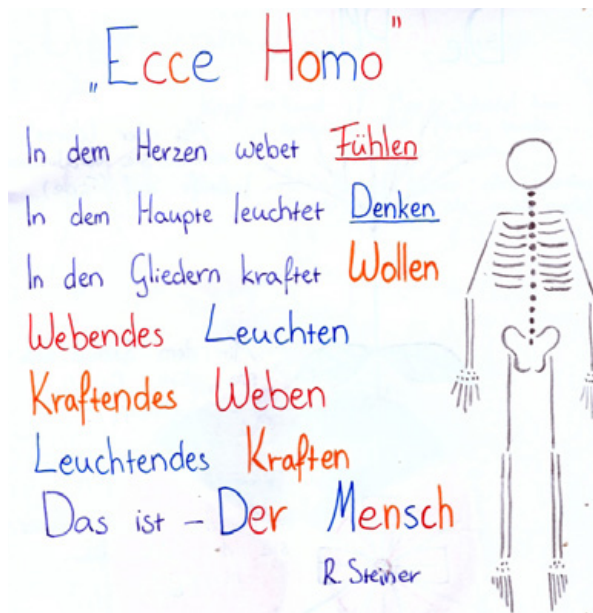 „Ecce Homo"
In dem Herzen webet Fühlen
In dem Haupte leuchtet Denken
In den Gliedern kraftet Wollen
Webendes Leuchten
Kraftendes Weben
Leuchtendes Kraften
Das ist – Der Mensch
R. Steiner